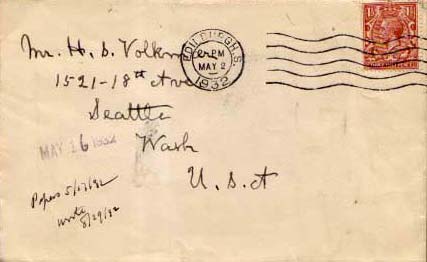 Mr. H. S. Volkmer
1521-18th Ave
Seattle
Wash
U. S. A
EDINBURGH.S.
PM
MAY 2
1932
MAY 16 1932
Papers 5/17/32
wrote
8/29/32